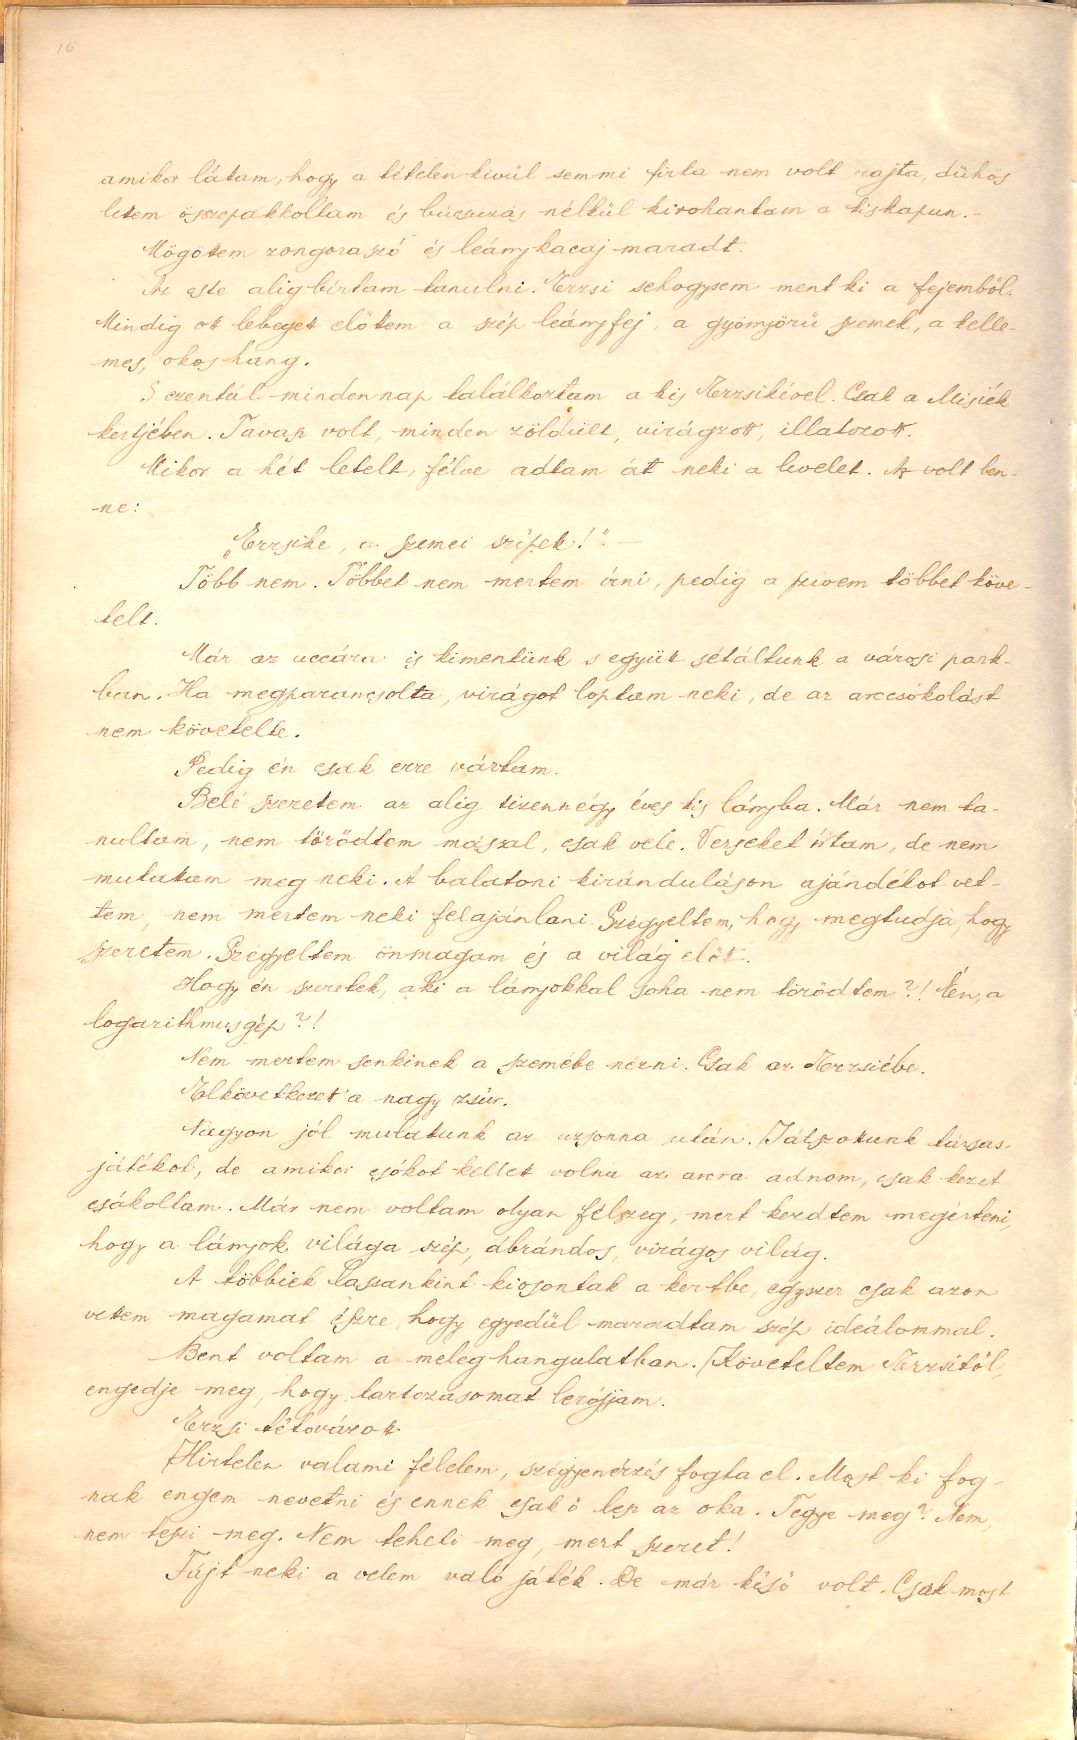 16
amikor látam, hogy a tételen kivül semmi firka nem volt rajta, dühös
letem összepakkoltam és búcsuzás nélkül kirohantam a kiskapun.-
Mögötem zongoraszó és leánykacaj maradt.
Az este alig birtam tanulni. Erzsi sehogysem ment ki a fejemből.
Mindig ot lebeget előtem a szép leányfej, a gyömjörü szemek, a kelle-
mes, okos hang.
S ezentúl minden nap találkoztam a kis Erzsikével. Csak a Misiék
kertjében. Tavasz volt, minden zöldült, virágzott, illatozott.
Mikor a hét letelt, félve adtam át neki a levelet. Az volt ben-
ne:
„Erzsike, a szemei szépek!" —
Több nem. Többet nem mertem írni, pedig a szívem többet köve-
telt.
Már az uccára is kimentünk s együt sétáltunk a városi park-
ban. Ha megparancsolta, virágot loptam neki, de az arccsókolást
nem követelte.
Pedig én csak erre vártam.
Belé szeretem az alig tizennégy éves kis lányba. Már nem ta-
nultam, nem törödtem mással, csak vele. Verseket írtam, de nem
mutatam meg neki. A balatoni kiránduláson ajándékot vet-
tem, nem mertem neki felajánlani. Szégyeltem, hogy megtudja, hogy
szeretem. Szégyeltem önmagam és a világ előtt.
Hogy én szeretek, aki a lányokkal soha nem törödtem?! Én, a
logarithmusgép?!
Nem mertem senkinek a szemébe nézni. Csak az Erzsiébe.
Elkövetkezet a nagy zsúr.
Nagyon jól mulatunk az uzsonna után. Játszotunk társas-
játékot, de amikor csókot kellet volna az arcra adnom, csak kezet
csókoltam. Már nem voltam olyan félszeg, mert kezdtem megérteni,
hogy a lányok világa szép, ábrándos, virágos világ.
A többiek lassankint kiosontak a kertbe, egyszer csak azon
vetem magamat észre, hogy egyedül maradtam szép ideálommal.
Bent voltam a meleg hangulatban. Követeltem Erzsitől,
engedje meg, hogy tartozásomat lerójjam.
Erzsi tétovázot.
Hirtelen valami félelem, szégyenérzés fogta el. Most ki fog-
nak engem nevetni és ennek csak ő lesz az oka. Tegye meg? Nem,
nem teszi meg. Nem teheti meg, mert szeret!
Fájt neki a velem való játék. De már késő volt. Csak most